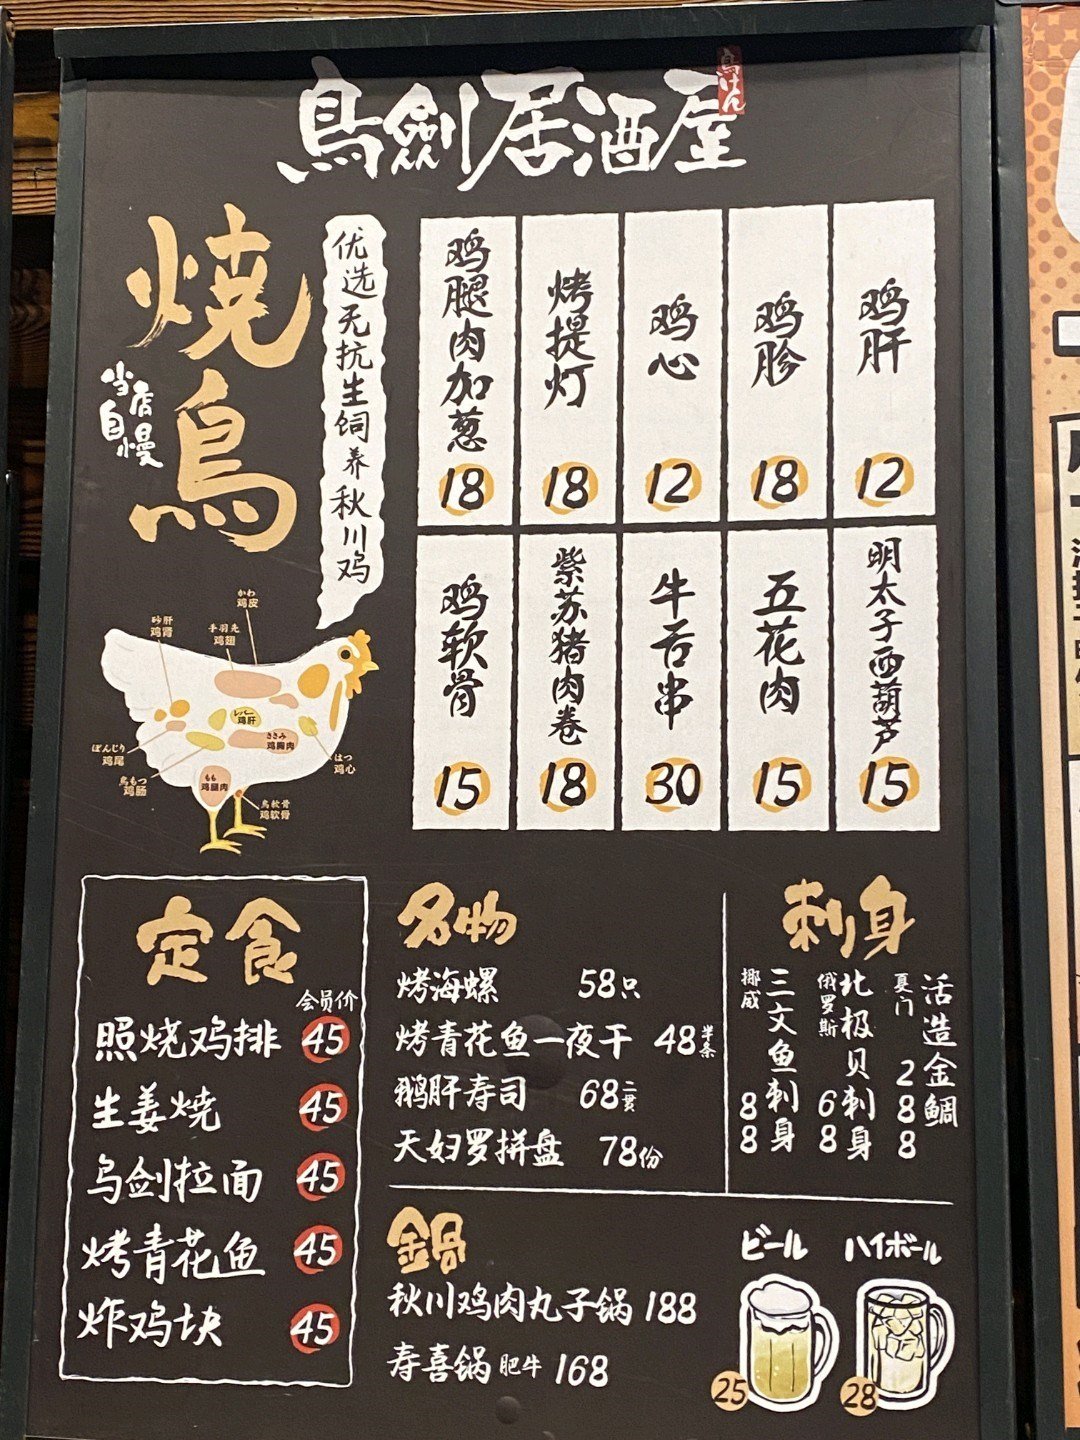 鳥劍居酒屋
鳥けん
燒鳥
当店自慢
优选无抗生饲养秋川鸡
鸡腿肉加葱 18
烤提灯 18
鸡心 12
鸡胗 18
鸡肝 12
鸡软骨 15
紫苏猪肉卷 18
牛舌串 30
五花肉 15
明太子西葫芦 15
かわ
鸡皮
砂肝
鸡肾
手羽先
鸡翅
レバー
鸡肝
ささみ
鸡胸肉
ぼんじり
鸡尾
鳥もつ
鸡肠
もも
鸡腿肉
はつ
鸡心
鳥軟骨
鸡软骨
定食
会员价
照烧鸡排 45
生姜烧 45
乌剑拉面 45
烤青花鱼 45
炸鸡块 45
名物
烤海螺 58只
烤青花鱼一夜干 48半条
鹅肝寿司 68二贯
天妇罗拼盘 78份
刺身
挪威 三文鱼刺身 88
俄罗斯 北极贝刺身 68
夏门 活造金鲷 288
鍋
秋川鸡肉丸子锅 188
寿喜锅 肥牛 168
ビール
25
ハイボール
28